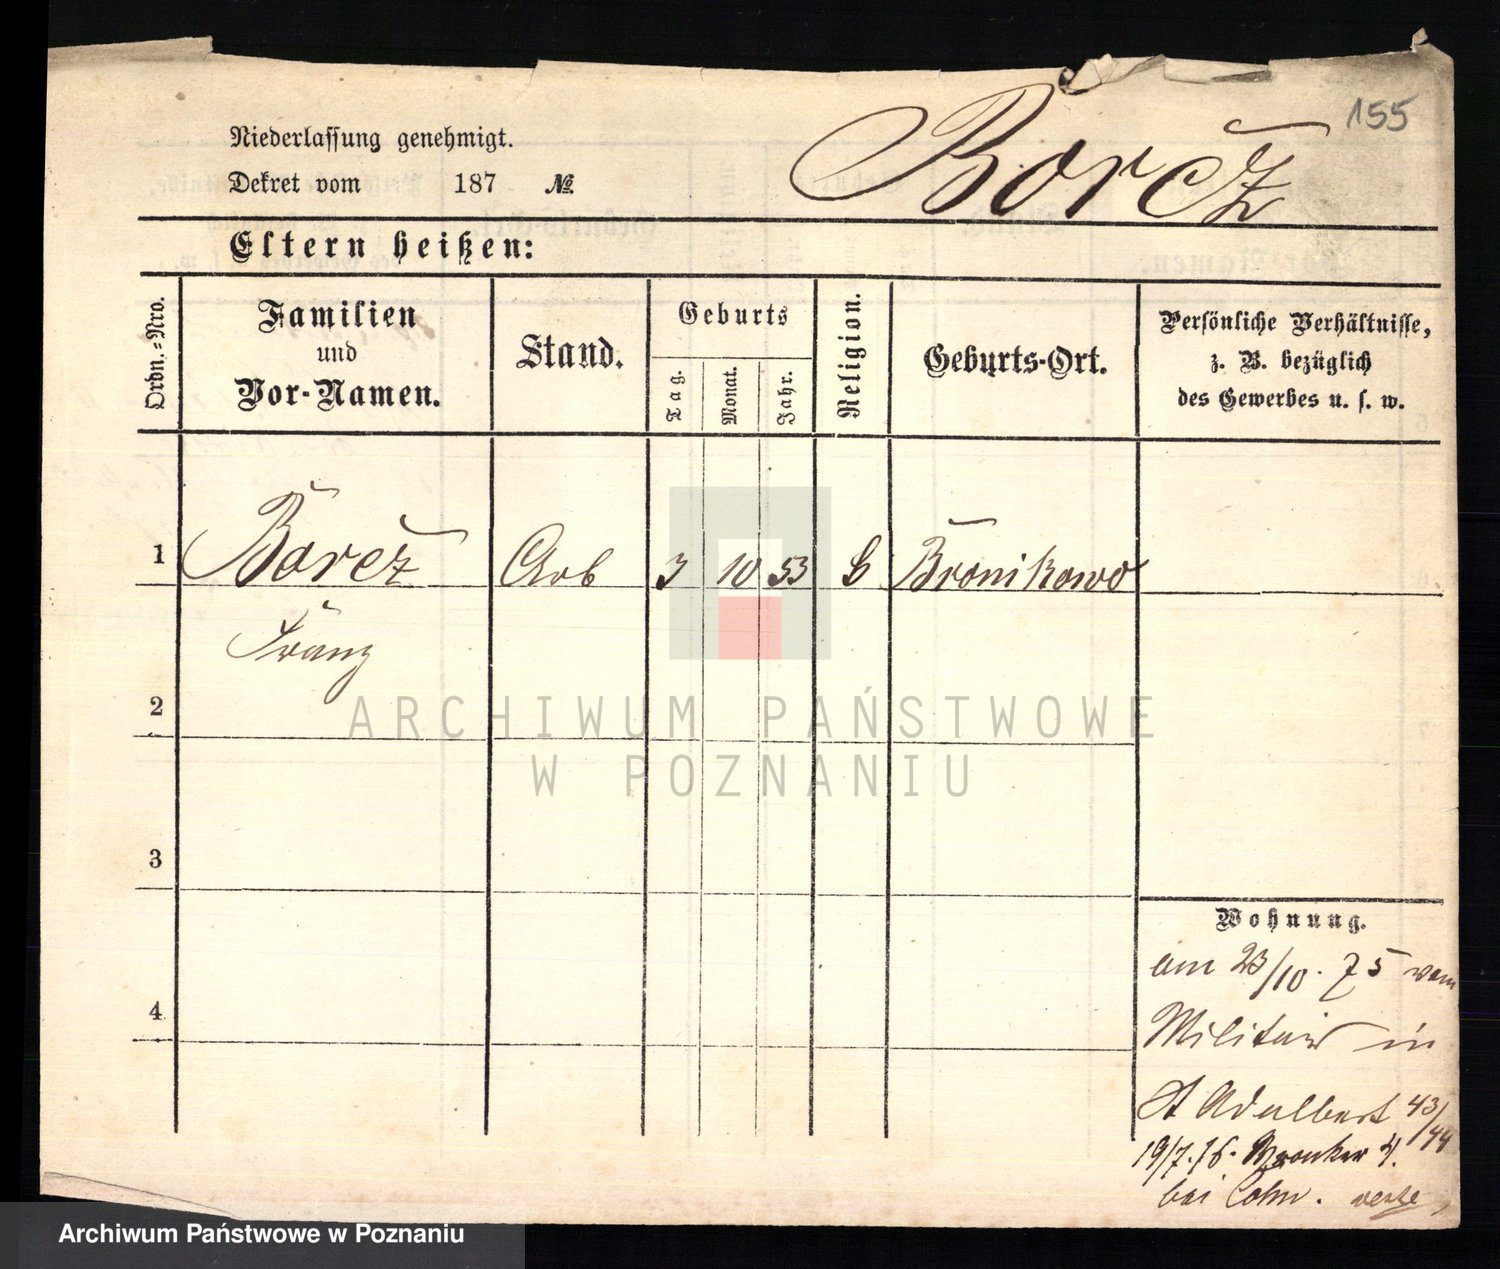 155
Niederlassung genehmigt.
Dekret vom 187 №
Borcz
Eltern heißen:
Ordn.-Nro.
Familien
und
Vor-Namen.
Stand.
Geburts
Tag.
Monat.
Jahr.
Religion.
Geburts-Ort.
Persönliche Verhältnisse,
z. B. bezüglich
des Gewerbes u. s. w.
1 Borcz Arb 3 10 53 Bronikowo
Franz
2
3
4
Wohnung.
am 23/10. 75 vom
Militair in
St Adalbert 43/44
19/7. 76. Wronker 4.
bei Cohn.
ARCHIWUM PAŃSTWOWE
W POZNANIU
Archiwum Państwowe w Poznaniu